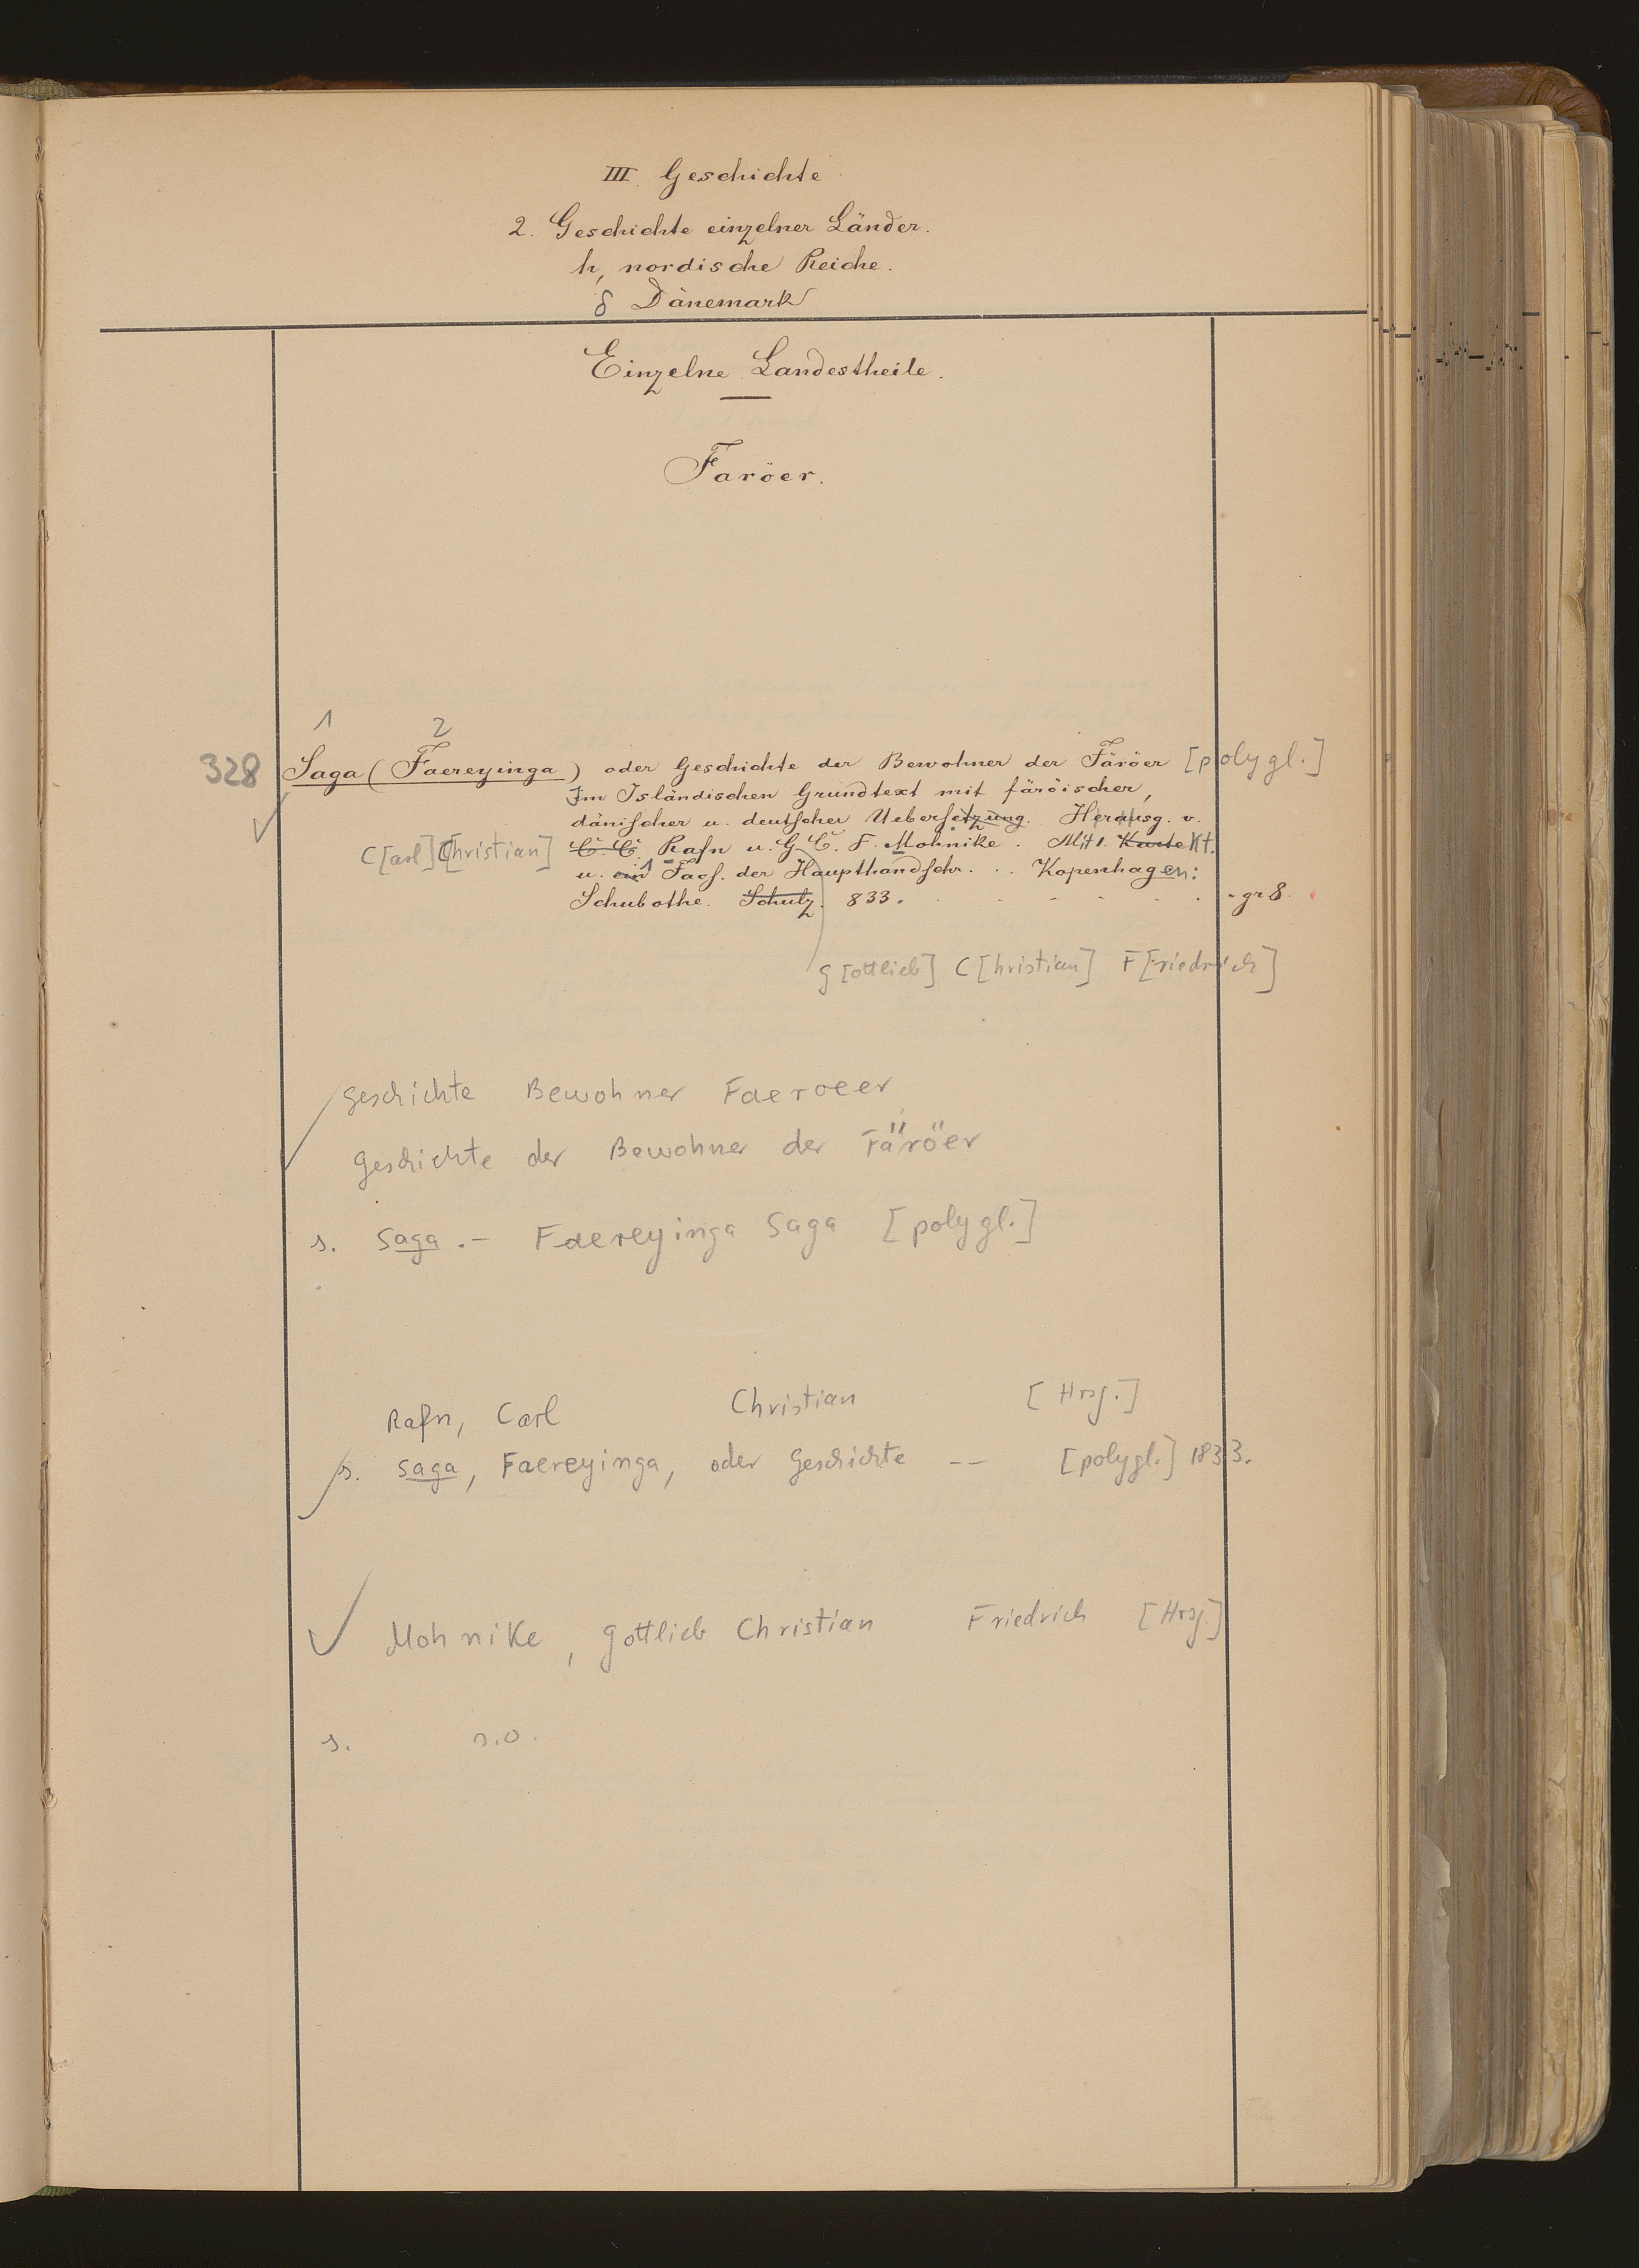 III. Geschichte
2. Geschichte einzelner Länder.
h, nordische Reiche.
δ Dänemark
Einzelne Landestheile.
Faröer.
1 2
328 Saga (Faereyinga) oder Geschichte der Bewohner der Färöer [polygl.]
Im Isländischen Grundtext mit färöischer,
dänischer u. deutscher Uebersetzung. Herausg. v.
C[arl] C[hristian] C. C. Rafn u. G. C. F. Mohnike. Mit 1. Karte Kt.
u. ein 1 Facs. der Haupthandschr. . . Kopenhagen:
Schubothe. Schulz. 833. - gr 8.
G[ottlieb] C[hristian] F[riedrich]
Geschichte Bewohner Faeroeer
Geschichte der Bewohner der Färöer
s. Saga .- Faereyinga Saga [polygl.]
Rafn, Carl Christian [Hrsg.]
s. Saga, Faereyinga, oder Geschichte -- [polygl.] 1833.
Mohnike, Gottlieb Christian Friedrich [Hrsg.]
s. s.o.